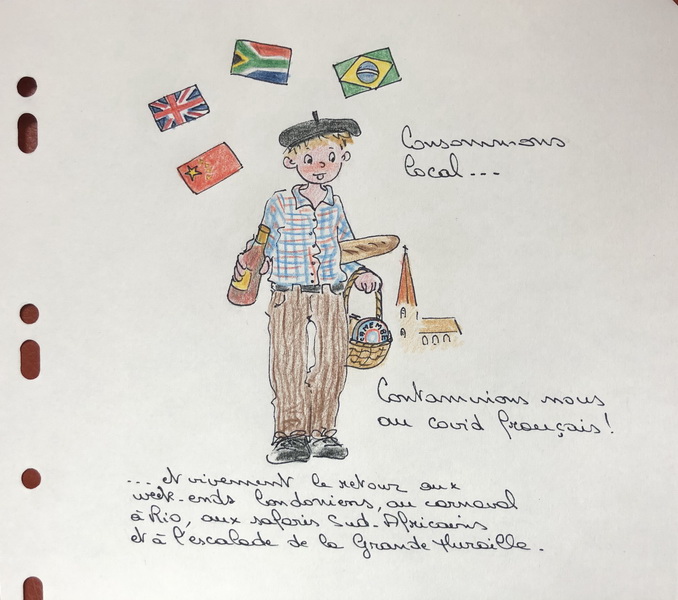 Consommons
local...
CAMEMBE
Contaminons nous
au covid français!
... et vivement le retour aux
week-ends londoniens, au carnaval
à Rio, aux safaris Sud-Africains
et à l'escalade de la Grande Muraille.